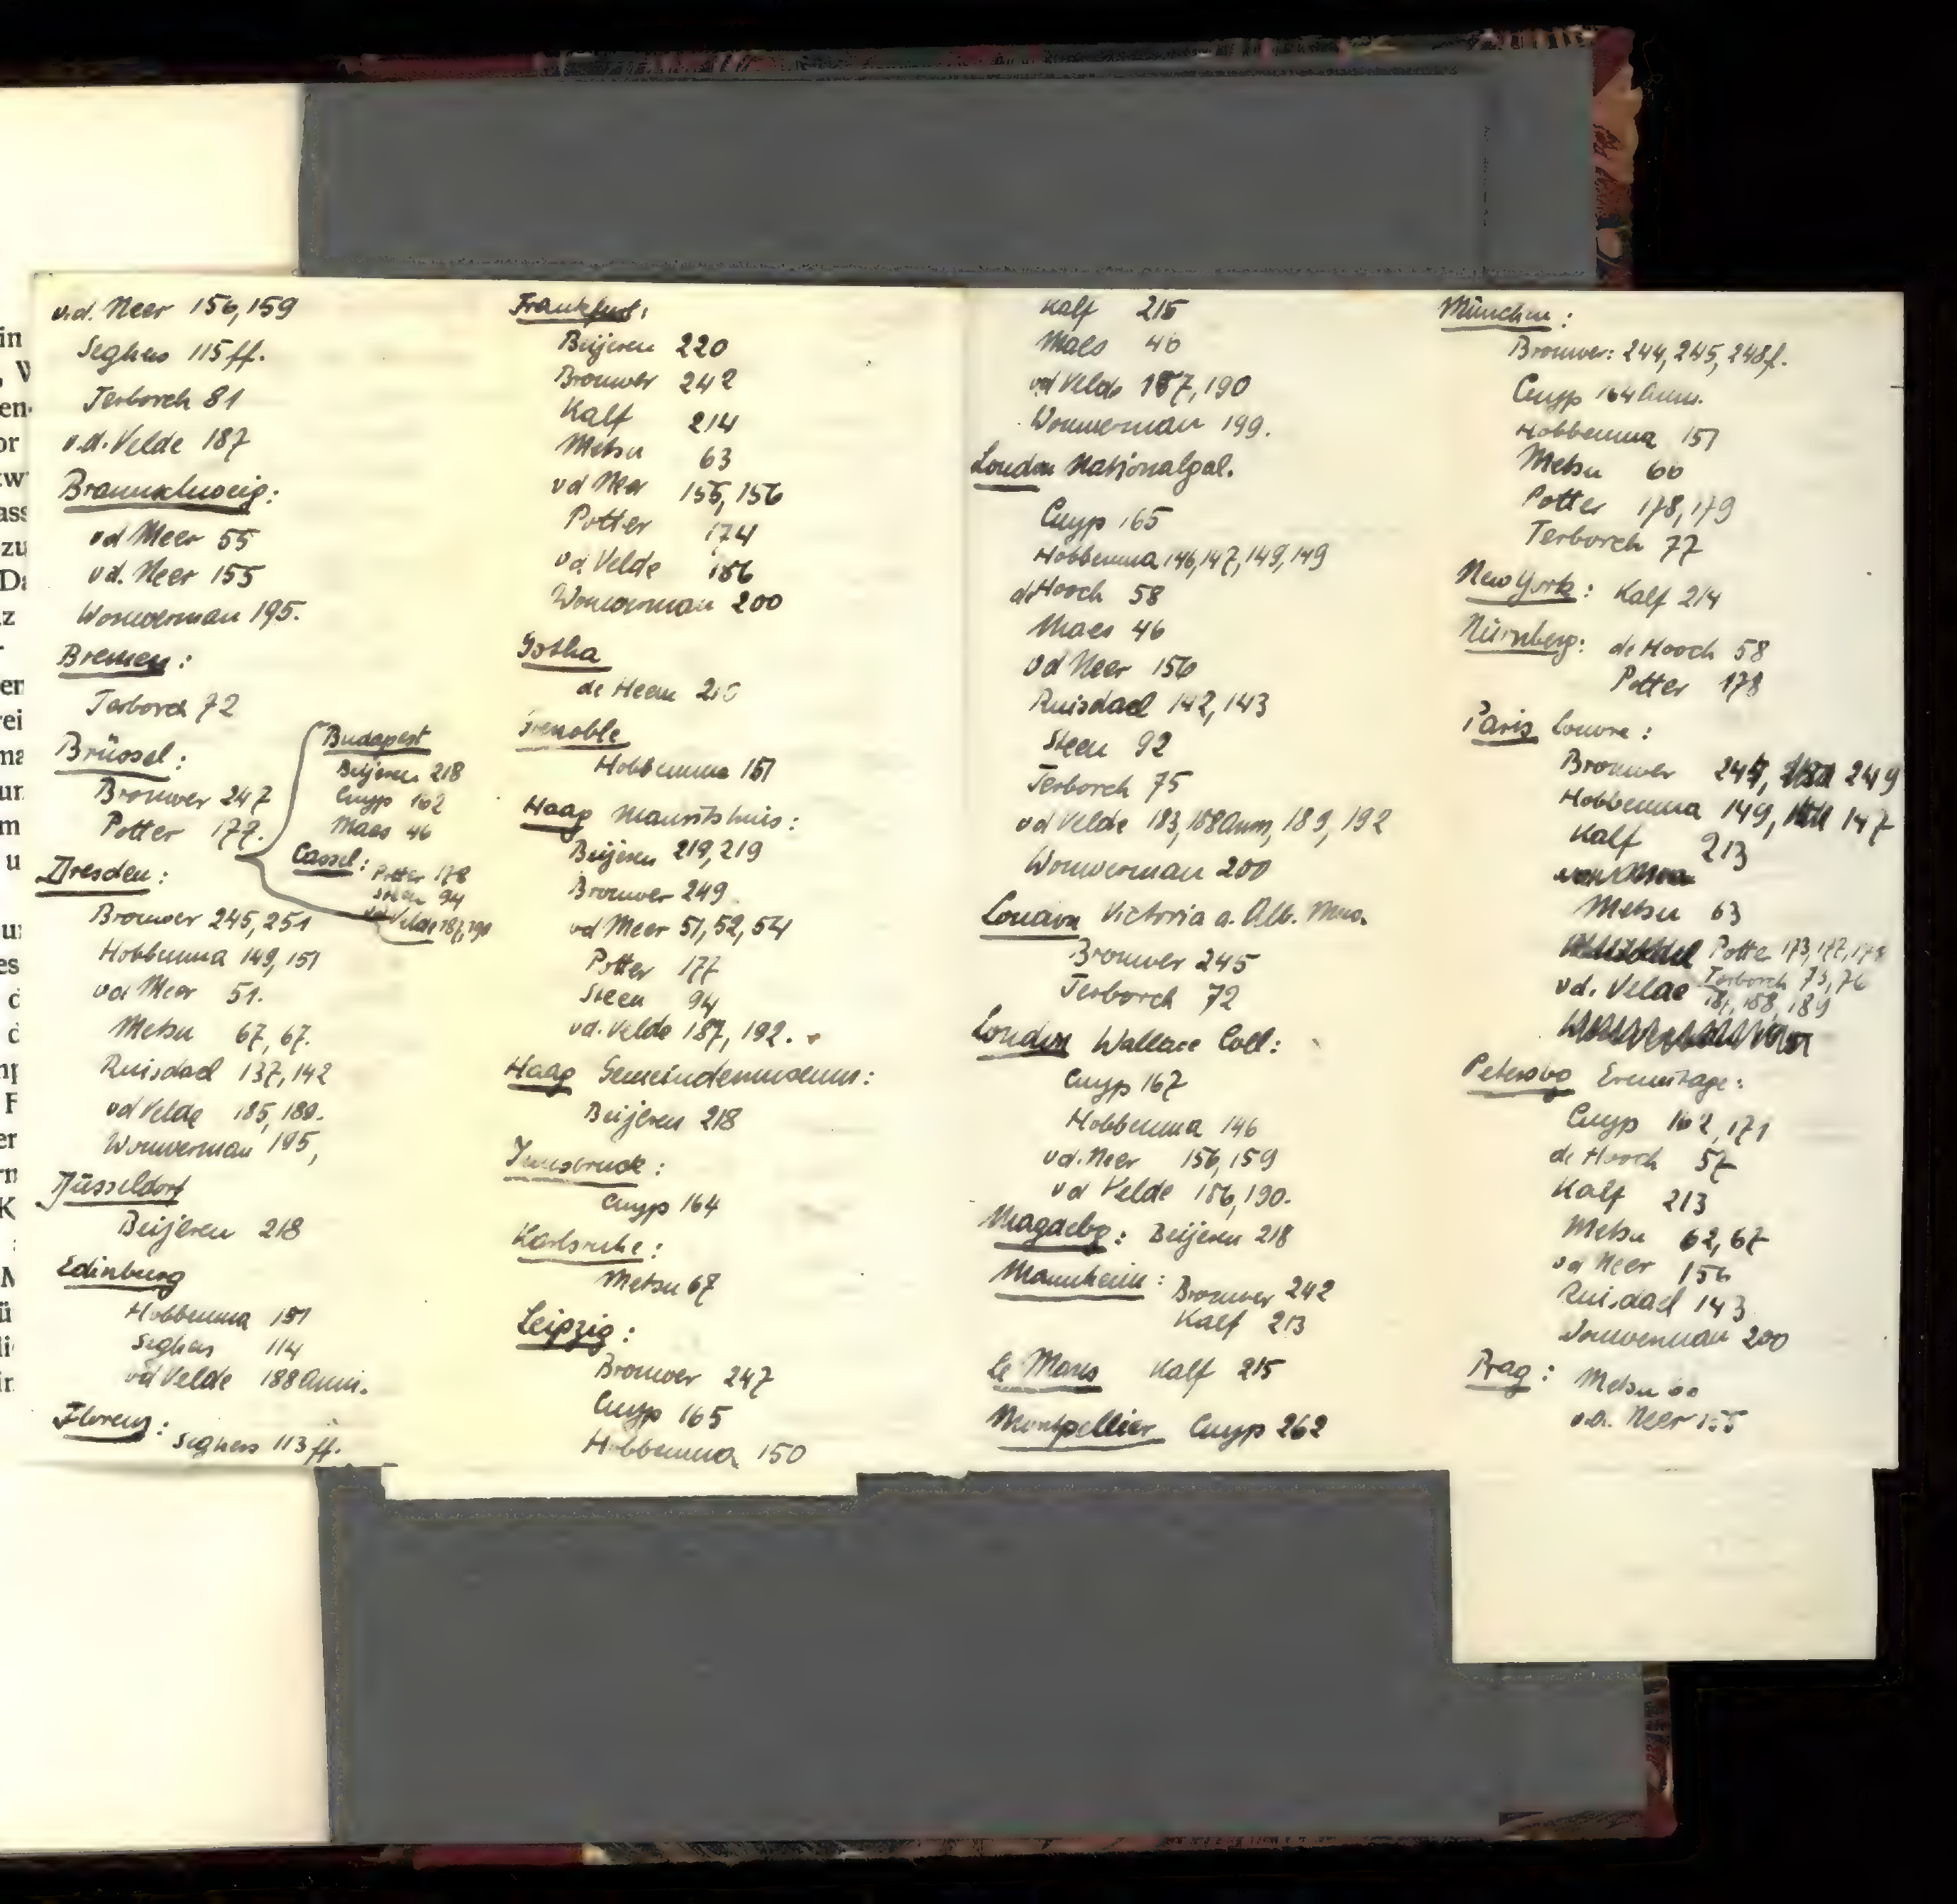 v.d. Neer 156, 159
Seghers 115 ff.
Terborch 81
v.d. Velde 187
Braunschweig:
vd Meer 55
vd. Neer 155
Wouwerman 195.
Bremen:
Terborch 72
Brüssel:
Brouwer 247
Potter 177.
Budapest
Beijeren 218
Cuyp 162
Maes 46
Cassel: Potter 178
Steen 94
vd Velde 187, 190
Dresden:
Brouwer 245, 251
Hobbema 149, 151
vd Meer 51.
Metsu 67, 67.
Ruisdael 137, 142
vd Velde 185, 189.
Wouwerman 195,
Düsseldorf
Beijeren 218
Edinburg
Hobbema 151
Seghers 114
vd Velde 188 Anm.
Florenz:
Seghers 113 ff.
Frankfurt:
Beijeren 220
Brouwer 242
Kalf 214
Metsu 63
vd Meer 155, 156
Potter 174
vd. Velde 186
Wouwerman 200
Gotha
de Heem
Grenoble
Hobbema 151
Haag Mauritshuis:
Beijeren 219, 219
Brouwer 249.
vd Meer 51, 52, 54
Potter 177
Steen 94
vd. Velde 187, 192.
Haag Gemeindemuseum:
Beijeren 218
Innsbruck:
Cuyp 164
Karlsruhe:
Metsu 67
Leipzig:
Brouwer 247
Cuyp 165
Hobbema 150
Kalf 215
Maes 46
vd Velde 187, 190
Wouwerman 199.
London Nationalgal.
Cuyp 165
Hobbema 146, 147, 149, 149
de Hooch 58
Maes 46
vd Neer 156
Ruisdael 142, 143
Steen 92
Terborch 75
vd Velde 183, 188 Anm, 189, 192
Wouwerman 200
London Victoria a. Alb. Mus.
Brouwer 245
Terborch 72
London Wallace Coll:
Cuyp 167
Hobbema 146
vd. Neer 156, 159
vd Velde 186, 190.
Magdebg: Beijeren 218
Mannheim: Brouwer 242
Kalf 213
Le Mans Kalf 215
Montpellier Cuyp 262
München:
Brouwer: 244, 245, 248f.
Cuyp 164 Anm.
Hobbema 151
Metsu 60
Potter 178, 179
Terborch 77
New York: Kalf 214
Nürnberg: de Hooch 58
Potter 178
Paris Louvre:
Brouwer 245, 249
Hobbema 149, 147
Kalf 213
Metsu 63
Potter 173, 177, 178
Terborch 75, 76
vd. Velde 187, 188, 189
Petersbg Ermitage:
Cuyp 162, 171
de Hooch 57
Kalf 213
Metsu 62, 67
vd Neer 156
Ruisdael 143
Wouwerman 200
Prag: Metsu 60
v.d. Neer 155